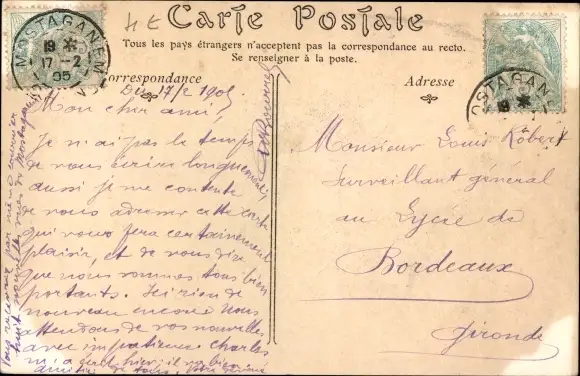 Carte Postale
Tous les pays étrangers n'acceptent pas la correspondance au recto.
Se renseigner à la poste.
Correspondance
Adresse
MOSTAGANEM
19
17-2
05
MOSTAGANEM
19
4E
Du 17/2 1905
Mon cher ami,
Je n'ai pas le temps
de vous écrire longuement
aussi je me contente
de vous adresser cette carte
qui vous fera certainement
plaisir, et de vous dire
que nous sommes tous bien
portants. Ici rien de
nouveau encore. Nous
attendons de vos nouvelles
avec impatience. Charles
m'a écrit hier; il va bien
amitiés de tous. Votre
Vous recevrez par même courrier
huit nouvelles vues de Mostaganem
Monsieur Louis Robert
Surveillant général
au Lycée de
Bordeaux
Gironde